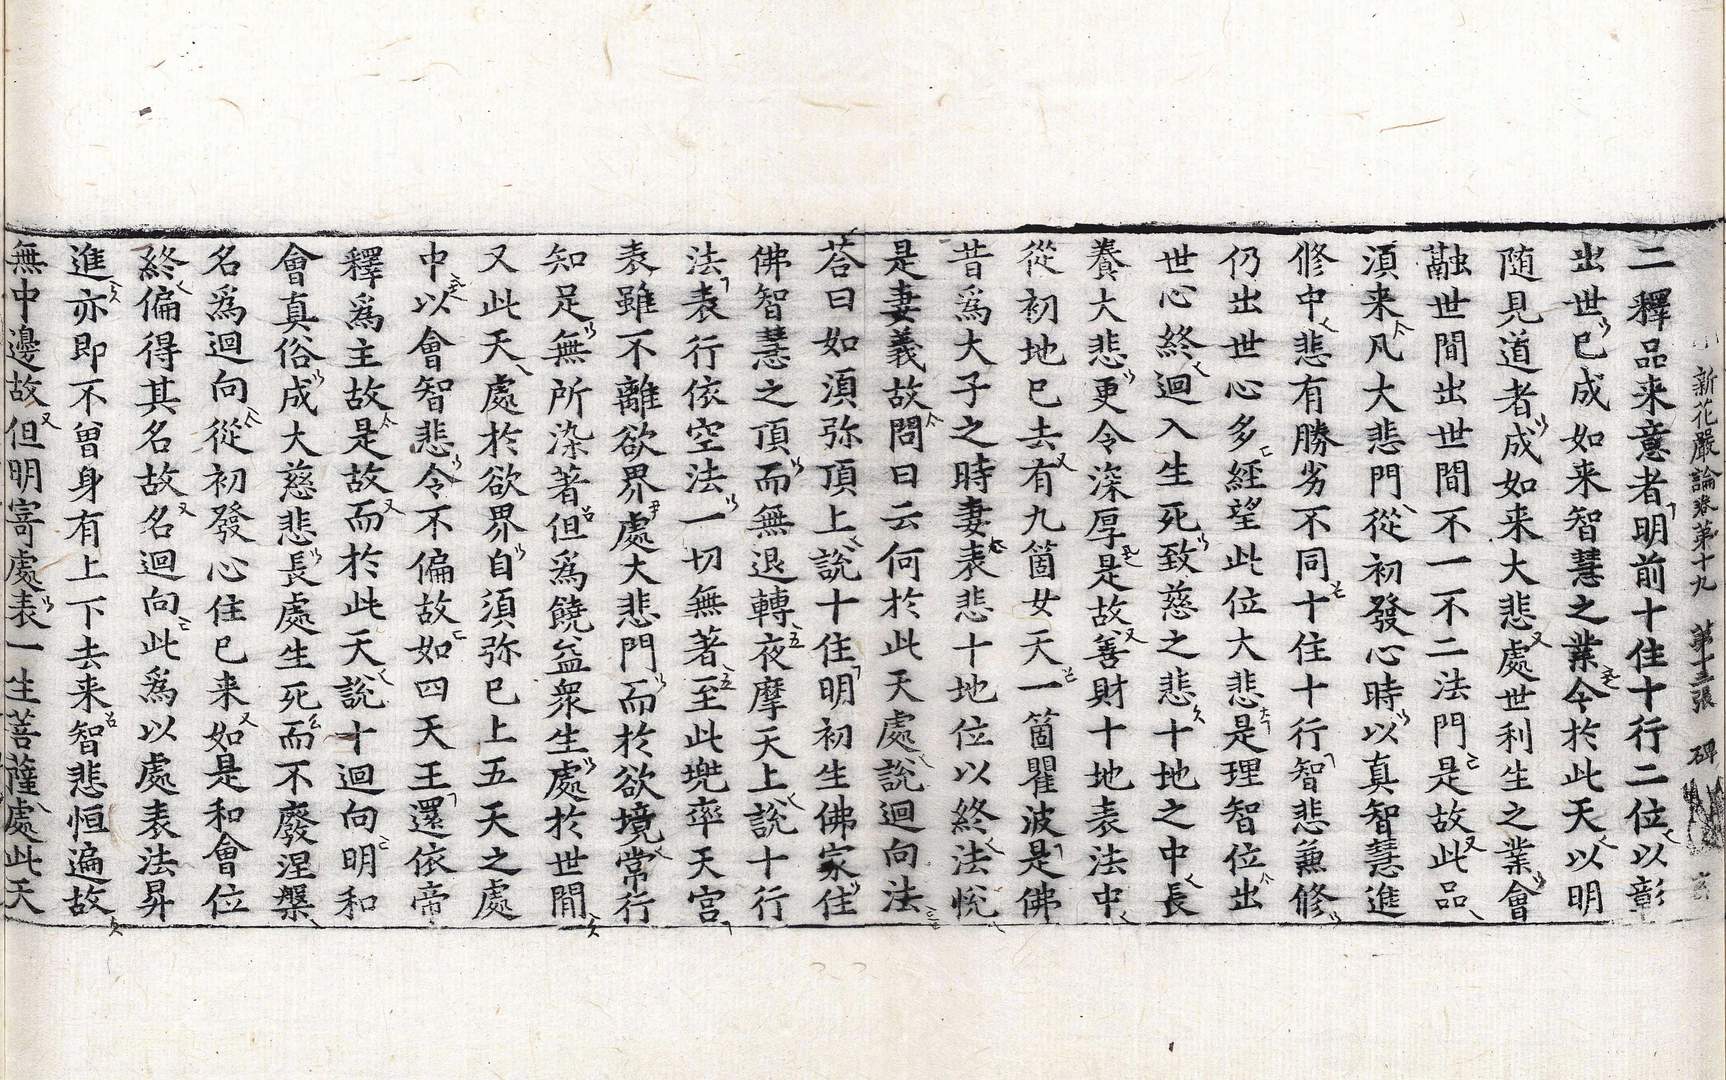 新花嚴論卷第十九 第十三張 碑
二釋品来意者明前十住十行二位以彰
出世已成如来智慧之業令於此天以明
随見道者成如来大悲處世利生之業會
融世間出世間不一不二法門是故此品
湏来凡大悲門從初發心時以真智慧進
修中悲有勝劣不同十住十行智悲兼修
仍出世心多經望此位大悲是理智位出
世心終迴入生死致慈之悲十地之中長
養大悲更令深厚是故善財十地表法中
從初地已去有九箇女天一箇瞿波是佛
昔為大子之時妻表悲十地位以終法恱
是妻義故問曰云何於此天處說迴向法
荅曰如湏弥頂上說十住明初生佛家住
佛智慧之頂而無退轉夜摩天上說十行
法表行依空法一切無著至此兠率天宮
表雖不離欲界處大悲門而於欲境常行
知足無所染著但為饒益衆生處於世間
又此天處於欲界自須弥已上五天之處
中以會智悲令不偏故如四天王還依帝
釋爲主故是故而於此天說十迴向明和
會真俗成大慈悲長處生死而不廢涅槃
名爲迴向從初發心住已来如是和會位
終偏得其名故名迴向此爲以處表法昇
進亦即不曾身有上下去来智悲恒遍故
無中邊故但明寄處表一生菩薩處此天